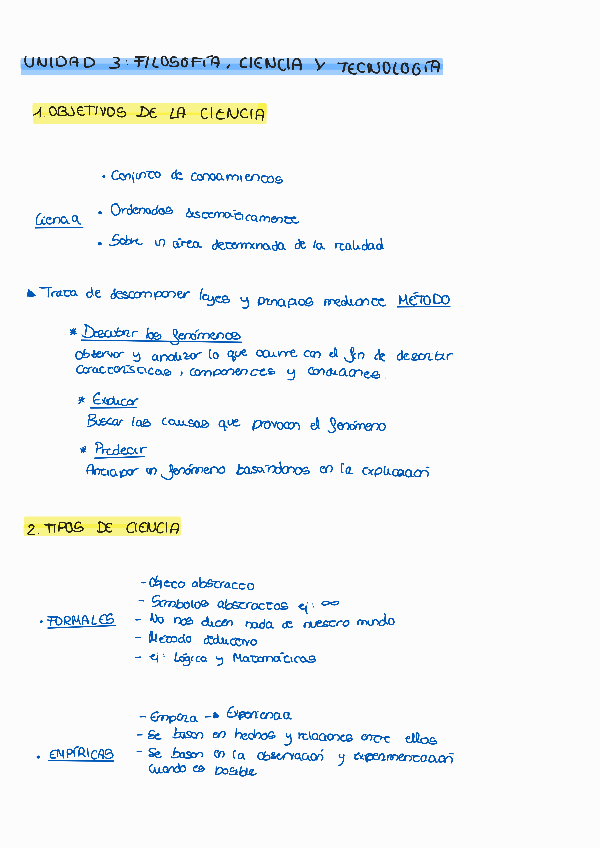 UNIDAD 3: FILOSOFÍA, CIENCIA Y TECNOLOGÍA
1. OBJETIVOS DE LA CIENCIA
• Conjunto de conocimientos
Ciencia • Ordenados sistemáticamente
• Sobre un área determinada de la realidad
▸ Trata de descomponer leyes y principios mediante MÉTODO
* Describir los fenómenos
Observar y analizar lo que ocurre con el fin de describir
características, componentes y condiciones.
* Explicar
Buscar las causas que provocan el fenómeno
* Predecir
Anticipar un fenómeno basándonos en la explicación
2. TIPOS DE CIENCIA
- Objeto abstracto
- Símbolos abstractos ej: ∞
• FORMALES - No nos dicen nada de nuestro mundo
- Método deductivo
- ej: Lógica y Matemáticas
- Empiria → Experiencia
- Se basan en hechos y relaciones entre ellos
• EMPÍRICAS - Se basan en la observación y experimentación
cuando es posible